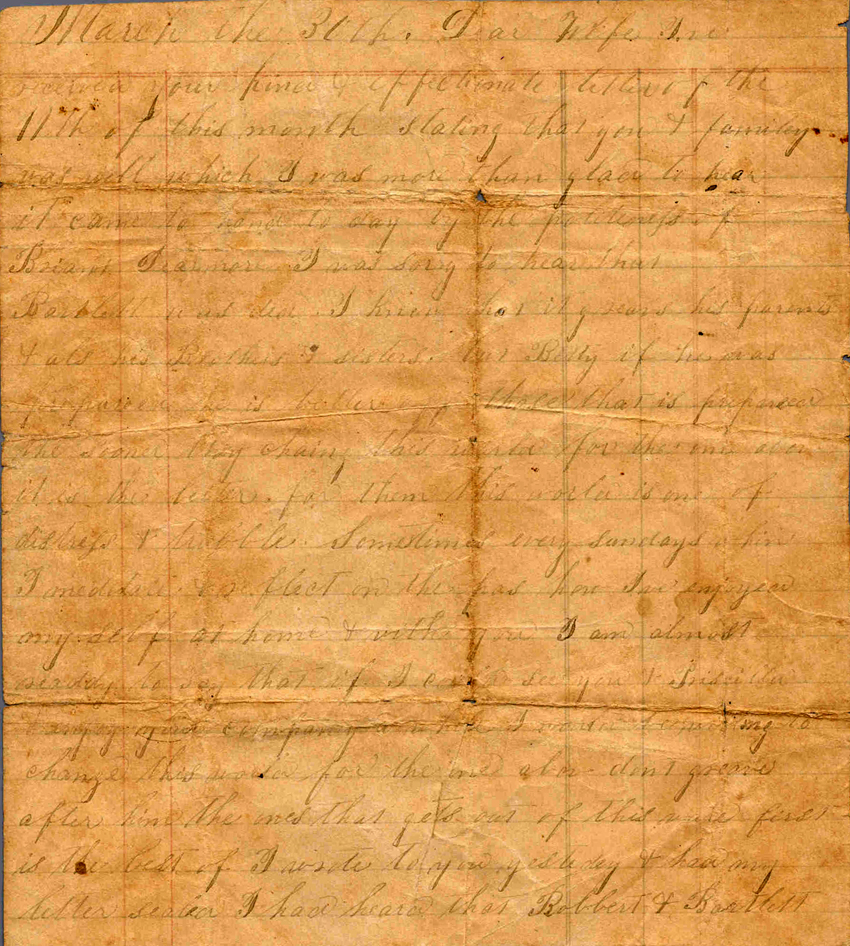 March the 30th. Dear Wife I've
received your kind & effectionate letter of the
11th of this month stating that you & familey
was well which I was more than glad to hear
it came to hand to day by the politeness of
Briant Dearmore I was sorry to hear that
Bartlett was dead I know that it greavs his parents
& all his Brothers & sisters. but Betty if he was
prepared he is better off those that is prepared
the sooner they chaing this world for the one abov
it is the better for them this world is one of
distress & trouble. Sometimes every sundays when
I meditate & reflect on the pas how I've enjoyed
my self at home & with you I am almost
ready to say that if I could see you &
& enjoy your company a while I would be willing to
change this world for the one abov dont greave
after him the ones that gets out of this ware first
is the best of I wrote to you yesterday & had my
letter sealed I had heard that Robbert & Bartlett